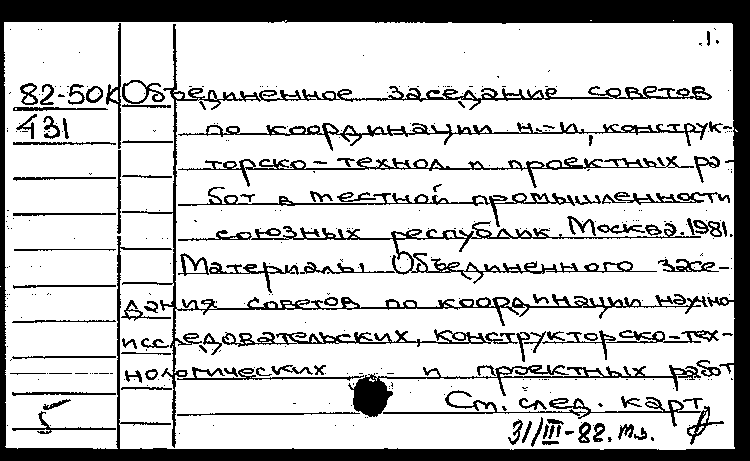 .1.
82-50К Объединенное заседание советов
431 по координации н.-и., конструк-
торско-технол. и проектных ра-
бот в местной промышленности
союзных республик. Москва. 1981.
Материалы Объединенного засе-
дания советов по координации научно-
исследовательских, конструкторско-тех-
нологических и проектных работ
См. след. карт.
5 31/III-82. т.г.